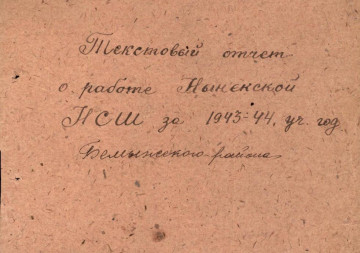 Текстовый отчет
о работе Нынекской
НСШ за 1943-44 уч. год
Бемыжского района